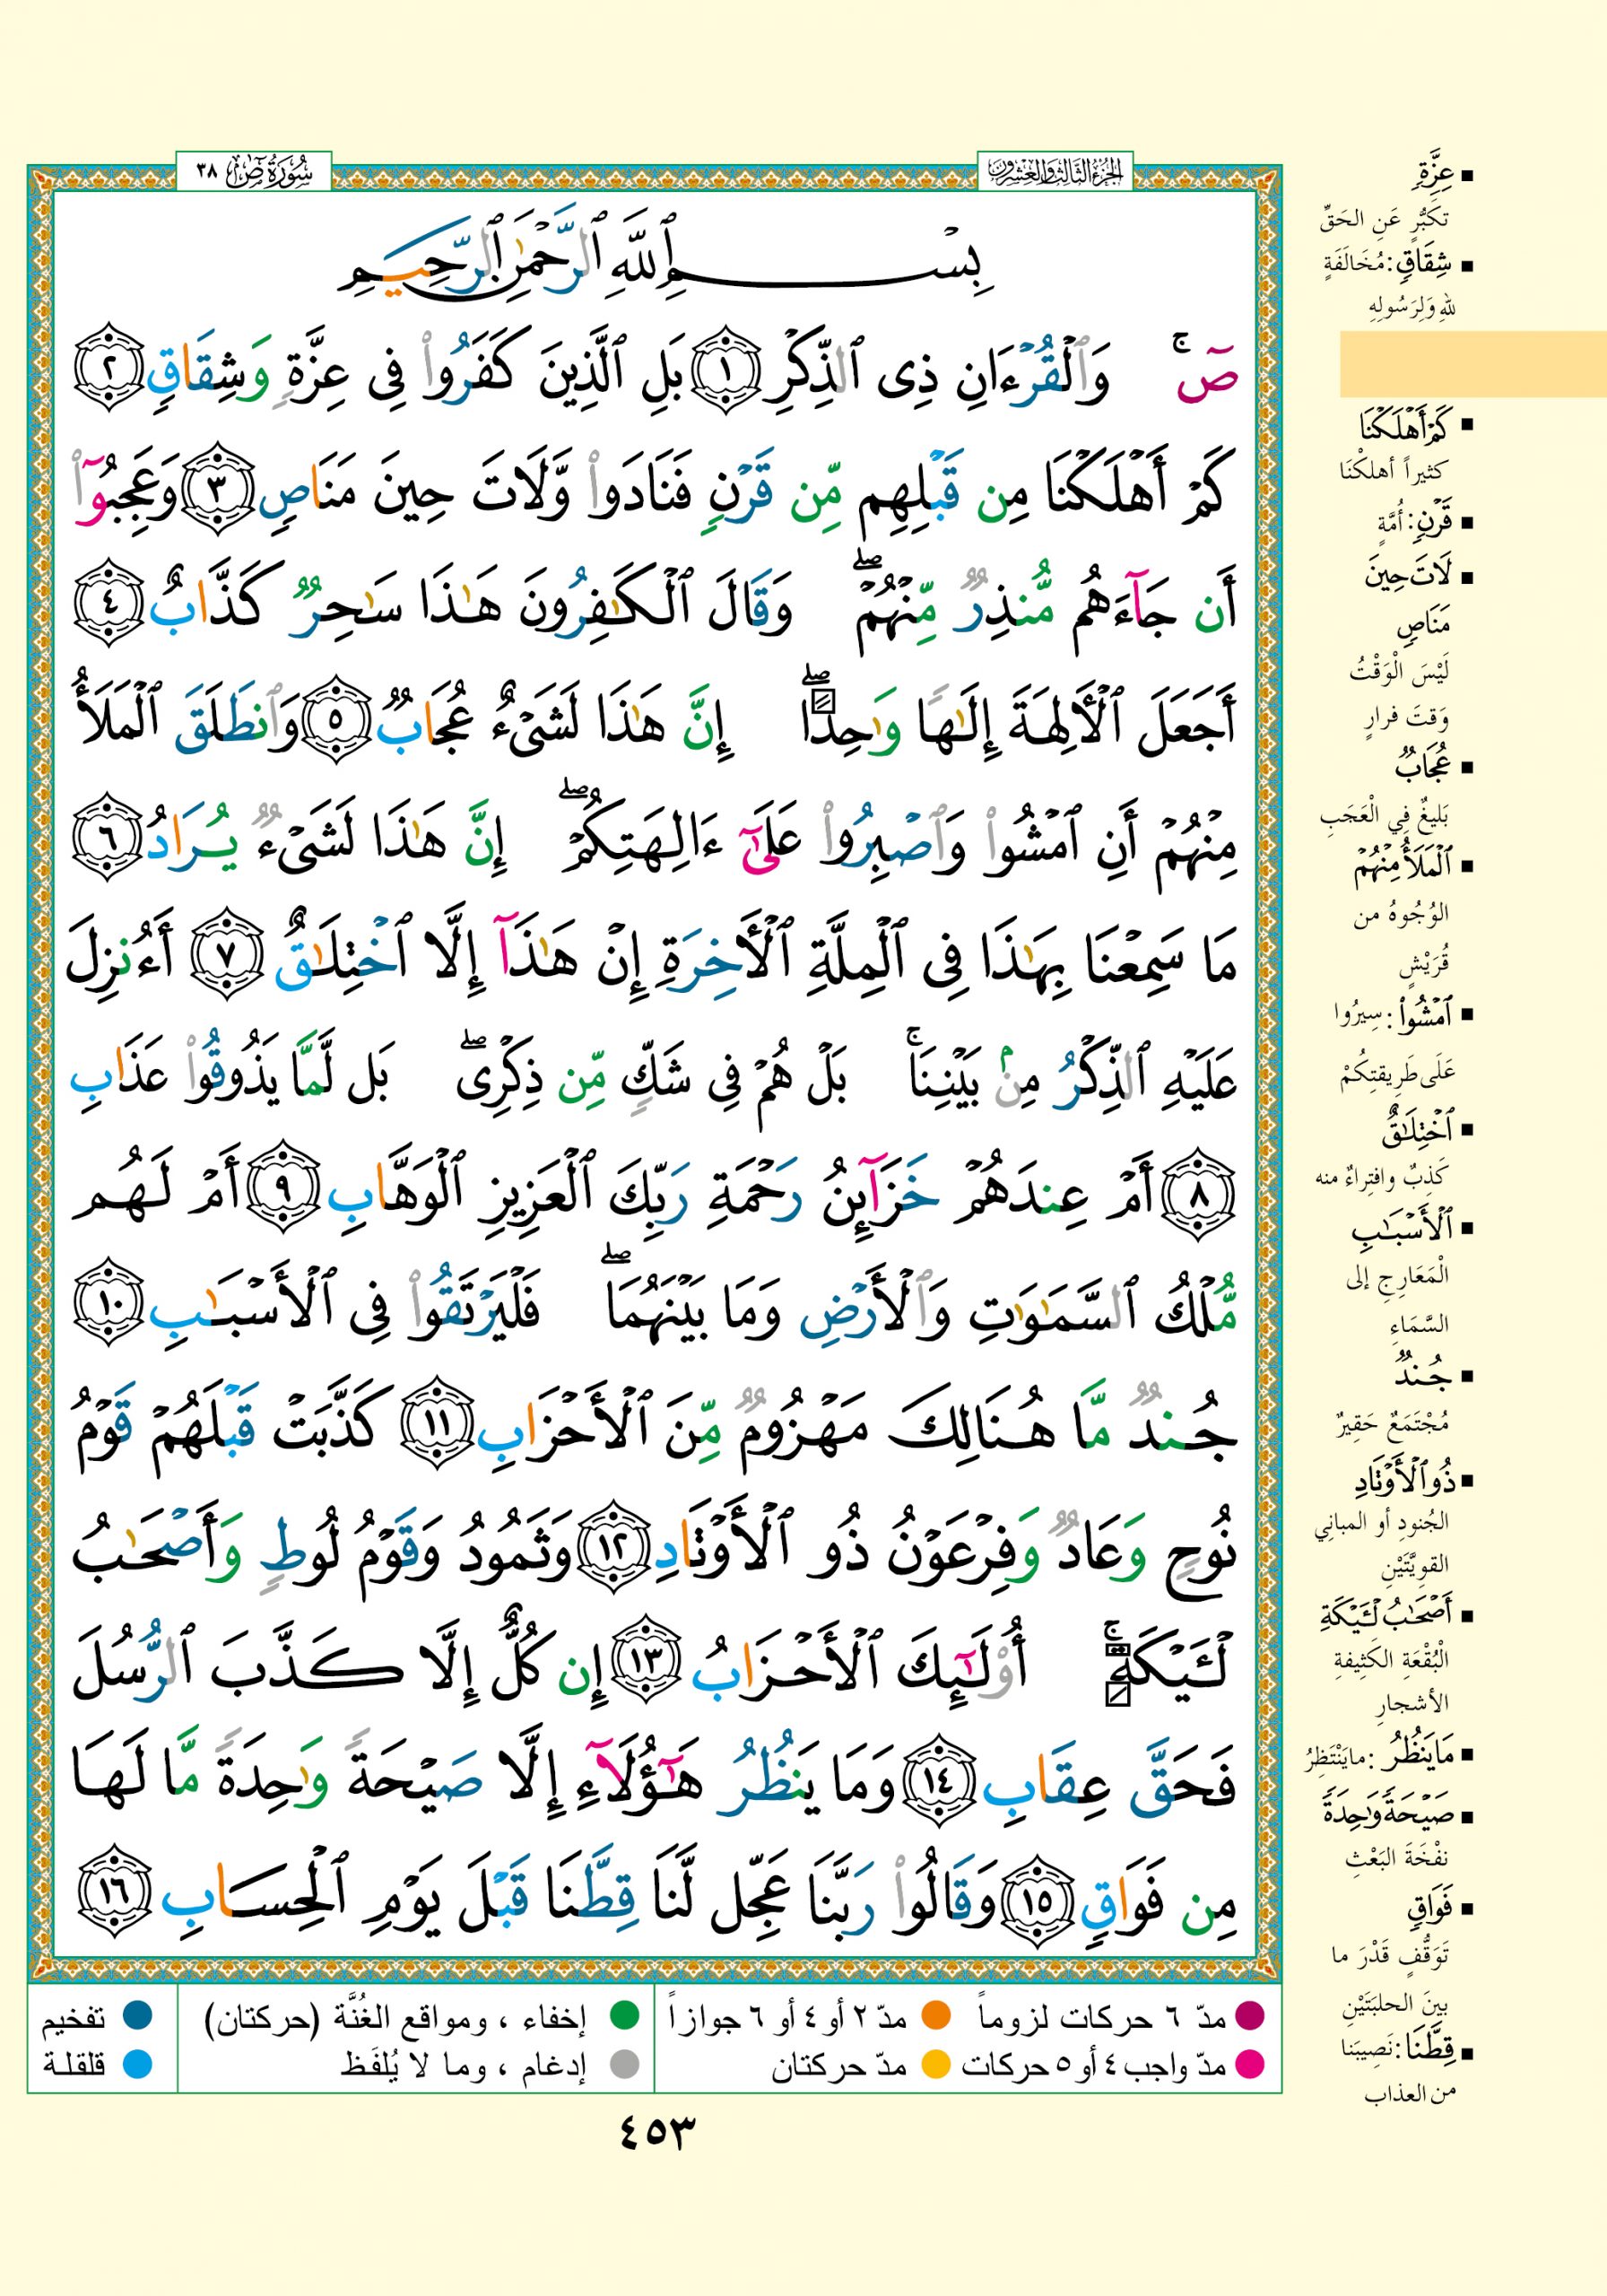 الجزء الثالث والعشرون
سُورَةُ صٓ ٣٨
بِسْمِ ٱللَّهِ ٱلرَّحْمَٰنِ ٱلرَّحِيمِ
صٓ ۚ وَٱلْقُرْءَانِ ذِى ٱلذِّكْرِ ١ بَلِ ٱلَّذِينَ كَفَرُوا۟ فِى عِزَّةٍ وَشِقَاقٍ ٢
كَمْ أَهْلَكْنَا مِن قَبْلِهِم مِّن قَرْنٍ فَنَادَوا۟ وَّلَاتَ حِينَ مَنَاصٍ ٣ وَعَجِبُوٓا۟
أَن جَآءَهُم مُّنذِرٌ مِّنْهُمْ ۖ وَقَالَ ٱلْكَٰفِرُونَ هَٰذَا سَٰحِرٌ كَذَّابٌ ٤
أَجَعَلَ ٱلْأَلِهَةَ إِلَٰهًا وَٰحِدًا ۖ إِنَّ هَٰذَا لَشَىْءٌ عُجَابٌ ٥ وَٱنطَلَقَ ٱلْمَلَأُ
مِنْهُمْ أَنِ ٱمْشُوا۟ وَٱصْبِرُوا۟ عَلَىٰٓ ءَالِهَتِكُمْ ۖ إِنَّ هَٰذَا لَشَىْءٌ يُرَادُ ٦
مَا سَمِعْنَا بِهَٰذَا فِى ٱلْمِلَّةِ ٱلْأَخِرَةِ إِنْ هَٰذَآ إِلَّا ٱخْتِلَٰقٌ ٧ أَءُنزِلَ
عَلَيْهِ ٱلذِّكْرُ مِنۢ بَيْنِنَا ۚ بَلْ هُمْ فِى شَكٍّ مِّن ذِكْرِى ۖ بَل لَّمَّا يَذُوقُوا۟ عَذَابِ
٨ أَمْ عِندَهُمْ خَزَآئِنُ رَحْمَةِ رَبِّكَ ٱلْعَزِيزِ ٱلْوَهَّابِ ٩ أَمْ لَهُم
مُّلْكُ ٱلسَّمَٰوَٰتِ وَٱلْأَرْضِ وَمَا بَيْنَهُمَا ۖ فَلْيَرْتَقُوا۟ فِى ٱلْأَسْبَٰبِ ١٠
جُندٌ مَّا هُنَالِكَ مَهْزُومٌ مِّنَ ٱلْأَحْزَابِ ١١ كَذَّبَتْ قَبْلَهُمْ قَوْمُ
نُوحٍ وَعَادٌ وَفِرْعَوْنُ ذُو ٱلْأَوْتَادِ ١٢ وَثَمُودُ وَقَوْمُ لُوطٍ وَأَصْحَٰبُ
لْـَٔيْكَةِ ۚ أُو۟لَٰٓئِكَ ٱلْأَحْزَابُ ١٣ إِن كُلٌّ إِلَّا كَذَّبَ ٱلرُّسُلَ
فَحَقَّ عِقَابِ ١٤ وَمَا يَنظُرُ هَٰٓؤُلَآءِ إِلَّا صَيْحَةً وَٰحِدَةً مَّا لَهَا
مِن فَوَاقٍ ١٥ وَقَالُوا۟ رَبَّنَا عَجِّل لَّنَا قِطَّنَا قَبْلَ يَوْمِ ٱلْحِسَابِ ١٦
▪ عِزَّةٍ
تكَبُّرٍ عَنِ الحَقِّ
▪ شِقَاقٍ: مُخَالَفَةٍ
للهِ وَلِرَسُولِهِ
▪ كَمْ أَهْلَكْنَا
كثيراً أهلكْنَا
▪ قَرْنٍ: أُمَّةٍ
▪ لَاتَ حِينَ
مَنَاصٍ
لَيْسَ الْوَقْتُ
وَقتَ فرارٍ
▪ عُجَابٌ
بَليغٌ فِي الْعَجَبِ
▪ ٱلْمَلَأُ مِنْهُمْ
الوُجُوهُ من
قُرَيْشٍ
▪ ٱمْشُوا۟: سِيرُوا
عَلَى طَرِيقتِكُمْ
▪ ٱخْتِلَٰقٌ
كَذِبٌ وافتِراءٌ منه
▪ ٱلْأَسْبَٰبِ
الْمَعَارِجِ إلى
السَّمَاءِ
▪ جُندٌ
مُجْتَمَعٌ حَقِيرٌ
▪ ذُو ٱلْأَوْتَادِ
الجُنودِ أو المبانِي
القويَّتَيْنِ
▪ أَصْحَٰبُ لْـَٔيْكَةِ
الْبُقْعَةِ الكَثِيفةِ
الأشجارِ
▪ مَا يَنظُرُ: ما يَنْتَظِرُ
▪ صَيْحَةً وَٰحِدَةً
نفْخَةَ البَعْثِ
▪ فَوَاقٍ
تَوَقُّفٍ قَدْرَ ما
بينَ الحلبَتَيْنِ
▪ قِطَّنَا: نَصِيبَنا
من العذاب
مدّ ٦ حركات لزوماً مدّ ٢ أو ٤ أو ٦ جوازاً إخفاء ، ومواقع الغُنَّة (حركتان) تفخيم
مدّ واجب ٤ أو ٥ حركات مدّ حركتان إدغام ، وما لا يُلفَظ قلقلة
٤٥٣